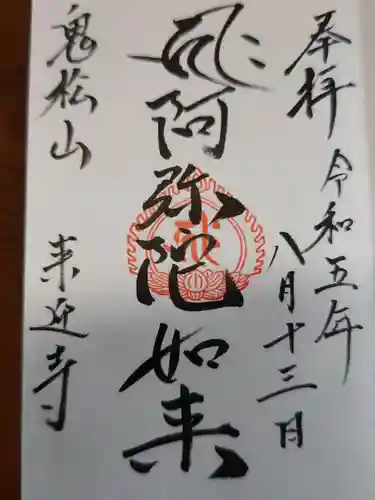 奉拝
令和五年
八月十三日
阿弥陀如来
鬼松山
来迎寺